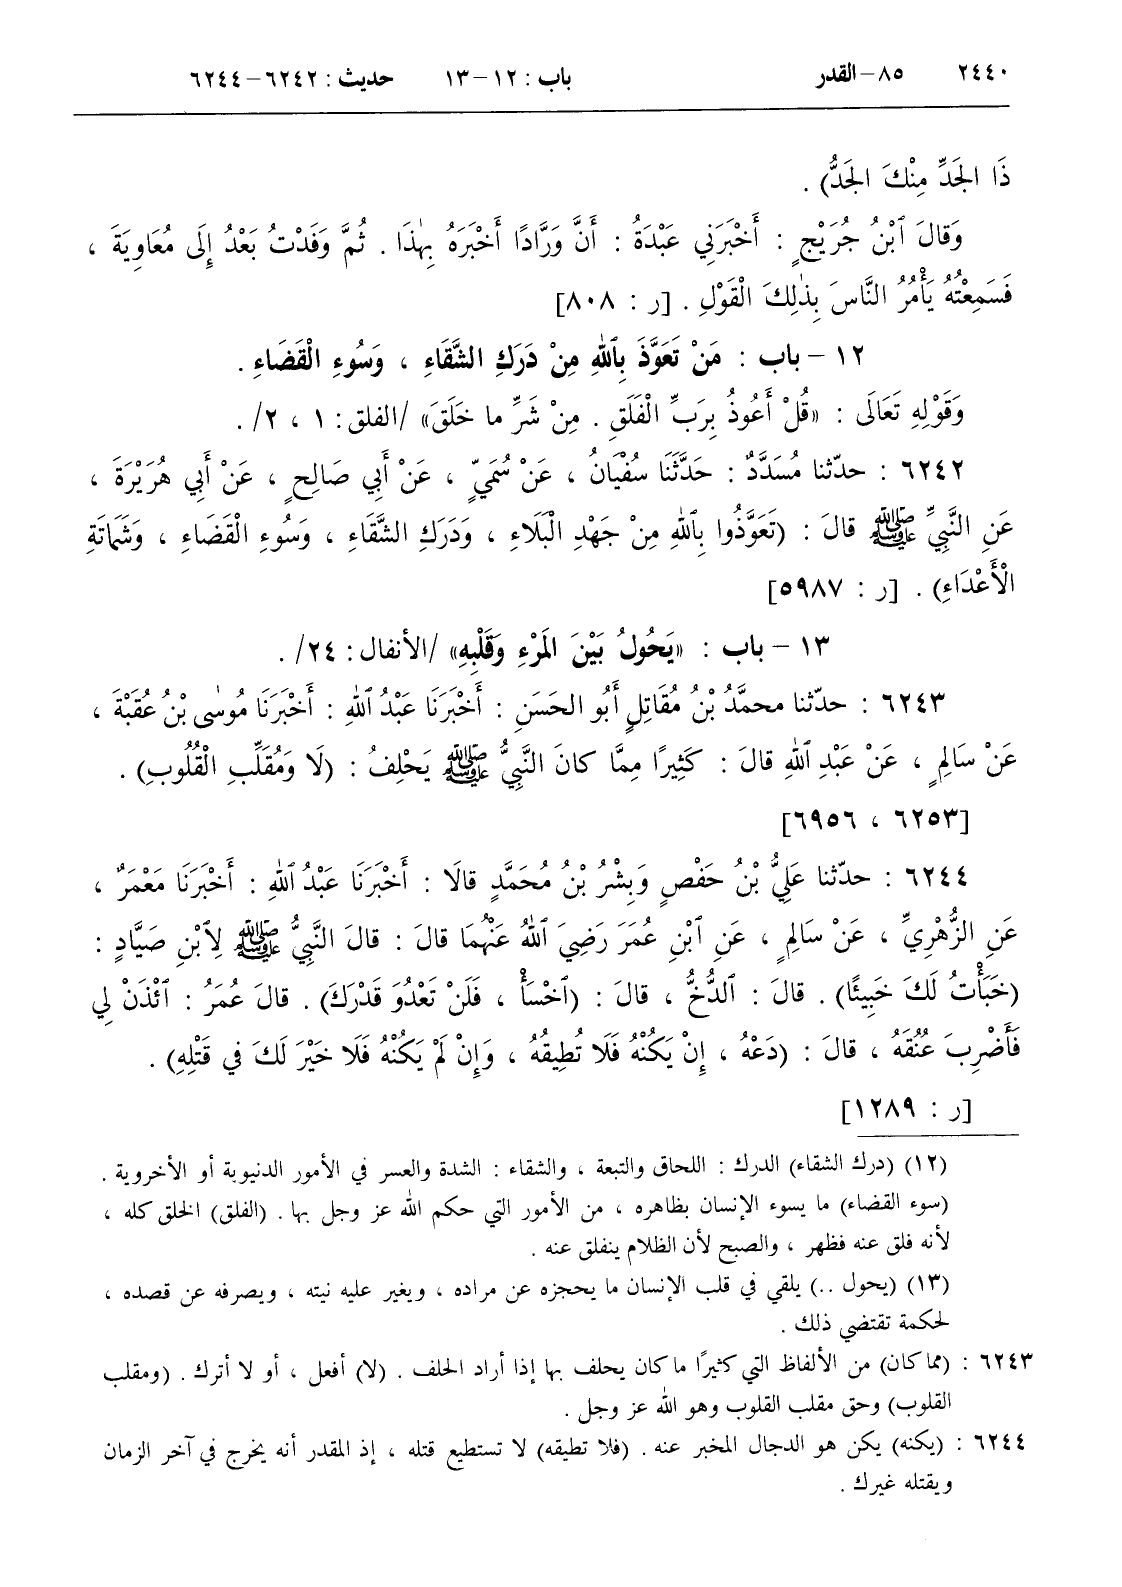 ٢٤٤٠ ٨٥ – القدر باب : ١٢ – ١٣ حديث : ٦٢٤٢ – ٦٢٤٤
ذَا الجَدِّ مِنْكَ الجَدُّ) .
وَقالَ ٱبْنُ جُرَيْجٍ : أَخْبَرَنِي عَبْدَةُ : أَنَّ وَرَّادًا أَخْبَرَهُ بِهٰذَا . ثُمَّ وَفَدْتُ بَعْدُ إِلَى مُعَاوِيَةَ ،
فَسَمِعْتُهُ يَأْمُرُ النَّاسَ بِذٰلِكَ الْقَوْلِ . [ر : ٨٠٨]
١٢ – باب : مَنْ تَعَوَّذَ بِٱللهِ مِنْ دَرَكِ الشَّقَاءِ ، وَسُوءِ الْقَضَاءِ .
وَقَوْلِهِ تَعَالَى : «قُلْ أَعُوذُ بِرَبِّ الْفَلَقِ . مِنْ شَرِّ ما خَلَقَ» /الفلق : ١ ، ٢/ .
٦٢٤٢ : حدّثنا مُسَدَّدٌ : حَدَّثَنَا سُفْيَانُ ، عَنْ سُمَيٍّ ، عَنْ أَبِي صَالِحٍ ، عَنْ أَبِي هُرَيْرَةَ ،
عَنِ النَّبِيِّ ﷺ قالَ : (تَعَوَّذُوا بِٱللهِ مِنْ جَهْدِ الْبَلَاءِ ، وَدَرَكِ الشَّقَاءِ ، وَسُوءِ الْقَضَاءِ ، وَشَمَاتَةِ
الْأَعْدَاءِ) . [ر : ٥٩٨٧]
١٣ – باب : «يَحُولُ بَيْنَ المَرْءِ وَقَلْبِهِ» /الأنفال : ٢٤/ .
٦٢٤٣ : حدّثنا محمَّدُ بْنُ مُقَاتِلٍ أَبُو الحَسَنِ : أَخْبَرَنَا عَبْدُ ٱللهِ : أَخْبَرَنَا مُوسٰى بْنُ عُقْبَةَ ،
عَنْ سَالِمٍ ، عَنْ عَبْدِ ٱللهِ قالَ : كَثِيرًا مِمَّا كانَ النَّبِيُّ ﷺ يَحْلِفُ : (لَا وَمُقَلِّبِ الْقُلُوبِ) .
[٦٢٥٣ ، ٦٩٥٦]
٦٢٤٤ : حدّثنا عَلِيُّ بْنُ حَفْصٍ وَبِشْرُ بْنُ مُحَمَّدٍ قالَا : أَخْبَرَنَا عَبْدُ ٱللهِ : أَخْبَرَنَا مَعْمَرٌ ،
عَنِ الزُّهْرِيِّ ، عَنْ سَالِمٍ ، عَنِ ٱبْنِ عُمَرَ رَضِيَ ٱللهُ عَنْهُمَا قالَ : قالَ النَّبِيُّ ﷺ لِٱبْنِ صَيَّادٍ :
(خَبَأْتُ لَكَ خَبِيئًا) . قالَ : ٱلدُّخُّ ، قالَ : (ٱخْسَأْ ، فَلَنْ تَعْدُوَ قَدْرَكَ) . قالَ عُمَرُ : ٱئْذَنْ لِي
فَأَضْرِبَ عُنُقَهُ ، قالَ : (دَعْهُ ، إِنْ يَكُنْهُ فَلَا تُطِيقُهُ ، وَإِنْ لَمْ يَكُنْهُ فَلَا خَيْرَ لَكَ في قَتْلِهِ) .
[ر : ١٢٨٩]
(١٢) (درك الشقاء) الدرك : اللحاق والتبعة ، والشقاء : الشدة والعسر في الأمور الدنيوية أو الأخروية .
(سوء القضاء) ما يسوء الإنسان بظاهره ، من الأمور التي حكم الله عز وجل بها . (الفلق) الخلق كله ،
لأنه فلق عنه فظهر ، والصبح لأن الظلام ينفلق عنه .
(١٣) (يحول ..) يلقي في قلب الإنسان ما يحجزه عن مراده ، ويغير عليه نيته ، ويصرفه عن قصده ،
لحكمة تقتضي ذلك .
٦٢٤٣ : (مما كان) من الألفاظ التي كثيرًا ما كان يحلف بها إذا أراد الحلف . (لا) أفعل ، أو لا أترك . (ومقلب
القلوب) وحق مقلب القلوب وهو الله عز وجل .
٦٢٤٤ : (يكنه) يكن هو الدجال المخبر عنه . (فلا تطيقه) لا تستطيع قتله ، إذ المقدر أنه يخرج في آخر الزمان
ويقتله غيرك .